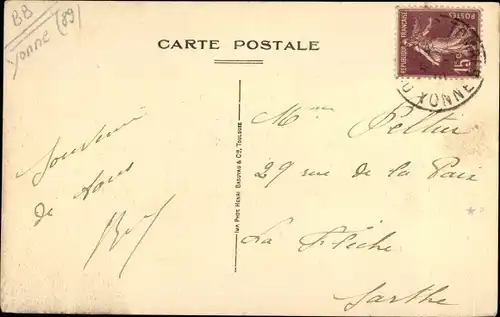 BB
Yonne (89)
CARTE POSTALE
REPUBLIQUE FRANÇAISE
POSTES
15c
YONNE
Souvenir
de nous
IMP. PHOT. HENRI BASUYAU & Cie, TOULOUSE
Mme Peltier
29 rue de la Paix
La Flèche
Sarthe